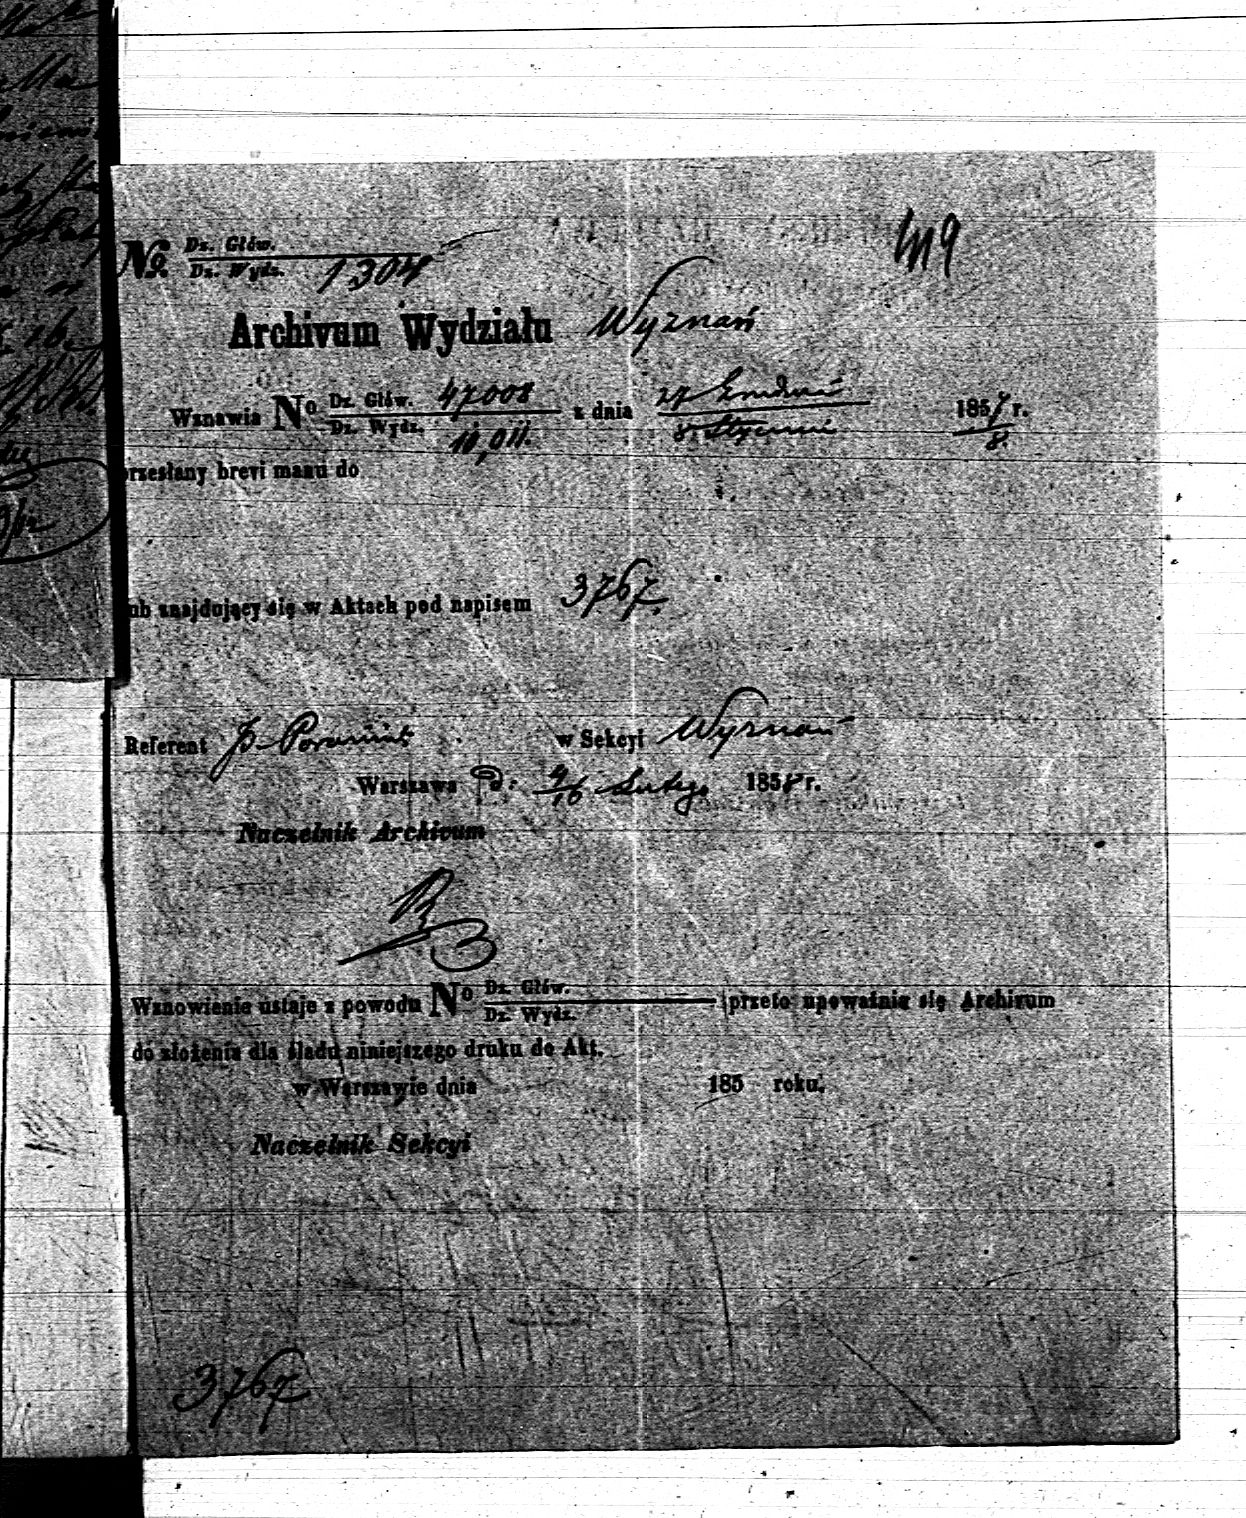 № Dz. Głów.
Dz. Wydz. 1304
Archivum Wydziału Wyznań
Wznawia No Dz. Głów. 47008 z dnia 27 Grudnia 1857 r.
Dz. Wydz. 10,911. 8 Stycznia 8.
przesłany brevi manu do
lub znajdujący się w Aktach pod napisem 3767.
Referent w Sekcyi Wyznań
Warszawa d: 4/16 Lutego 1858 r.
Naczelnik Archivum
Wznowienie ustaje z powodu No Dz. Głów. przeto upoważnia się Archivum
Dz. Wydz.
do złożenia dla śladu niniejszego druku do Akt.
w Warszawie dnia 185 roku.
Naczelnik Sekcyi
3767